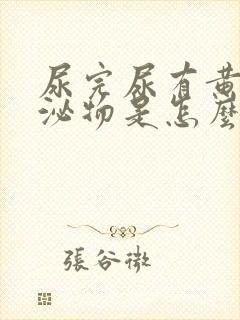 尿完尿有黄
泌物是怎麼
張谷微